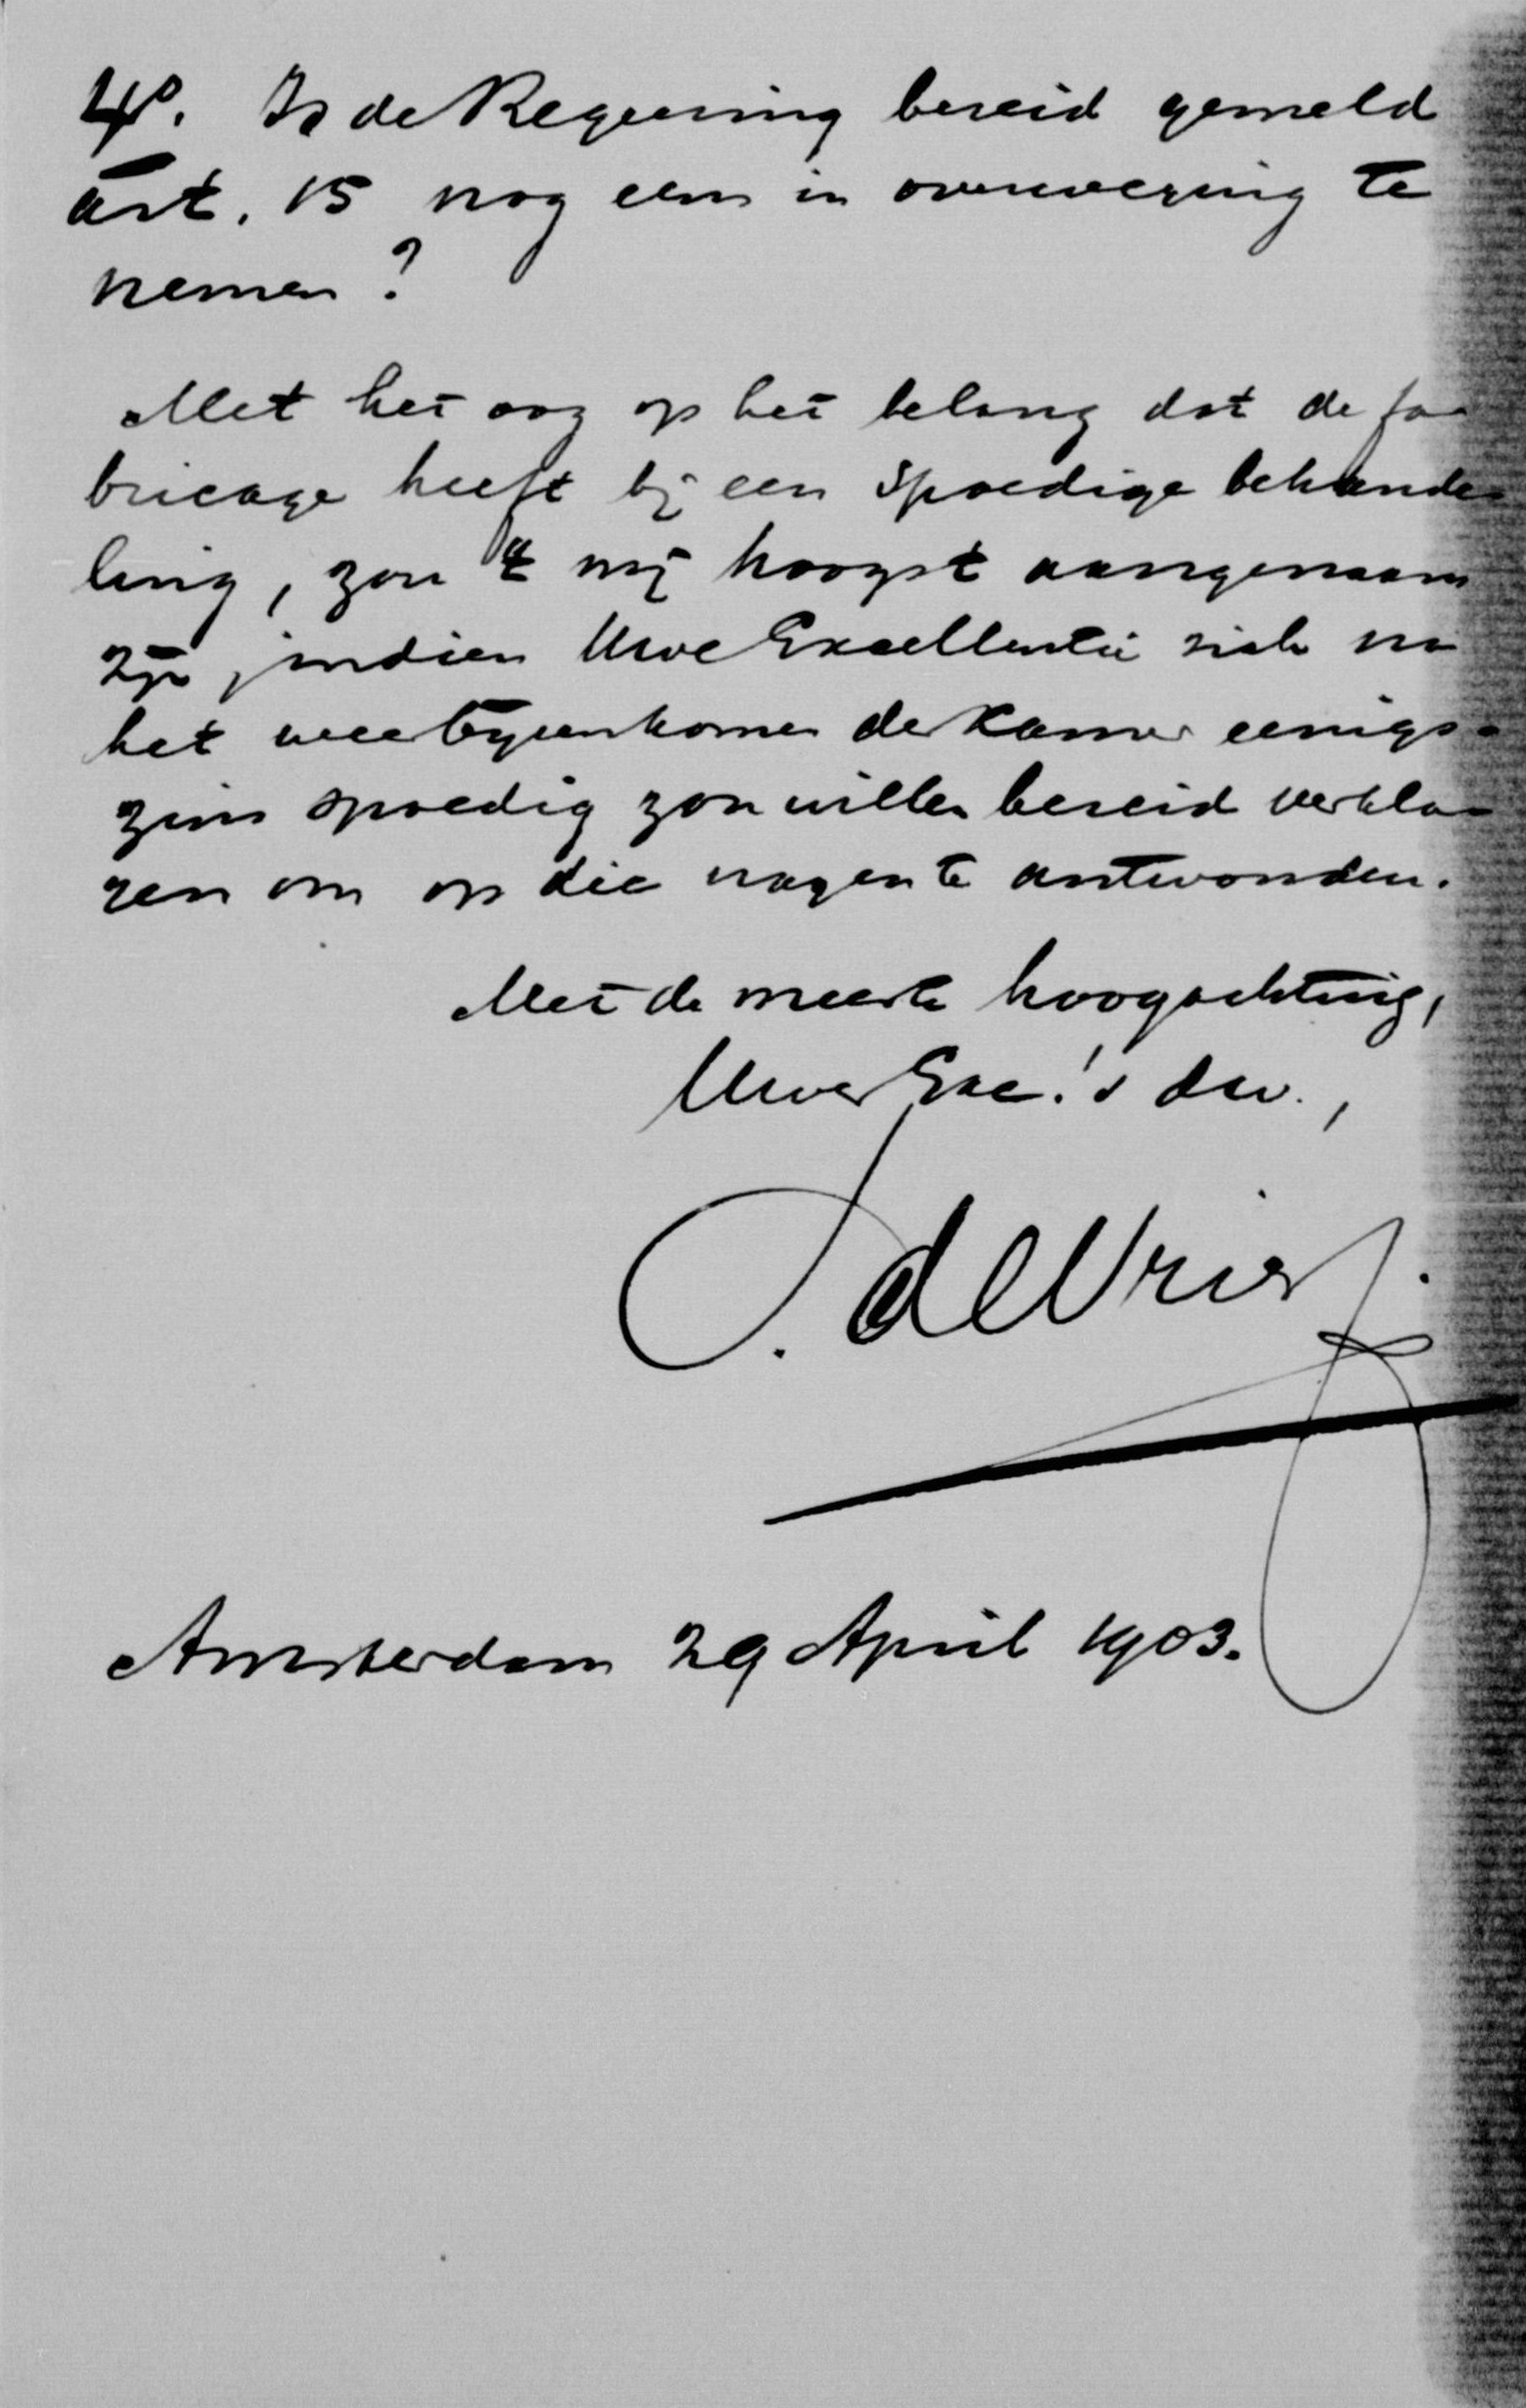 4°. Is de Regeering bereid gemeld
art. 15 nog eens in overweging te
nemen?
Met het oog op het belang dat de fa-
bricage heeft bij een spoedige behande-
ling, zou 't mij hoogst aangenaam
zijn, indien Uwe Excellentie zich na
het weer bijeenkomen der Kamer eenigs-
zins spoedig zou willen bereid verkla-
ren om op die vragen te antwoorden.
Met de meeste hoogachting,
Uwer Exc.'s dw.,
S. de Vries
Amsterdam 29 April 1903.